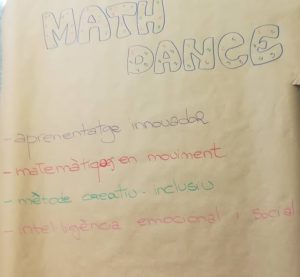 MATH
DANCE
- aprenentatge innovador
- matemàtiques en moviment
- mètode creatiu - inclusiu
- intel·ligència emocional i social